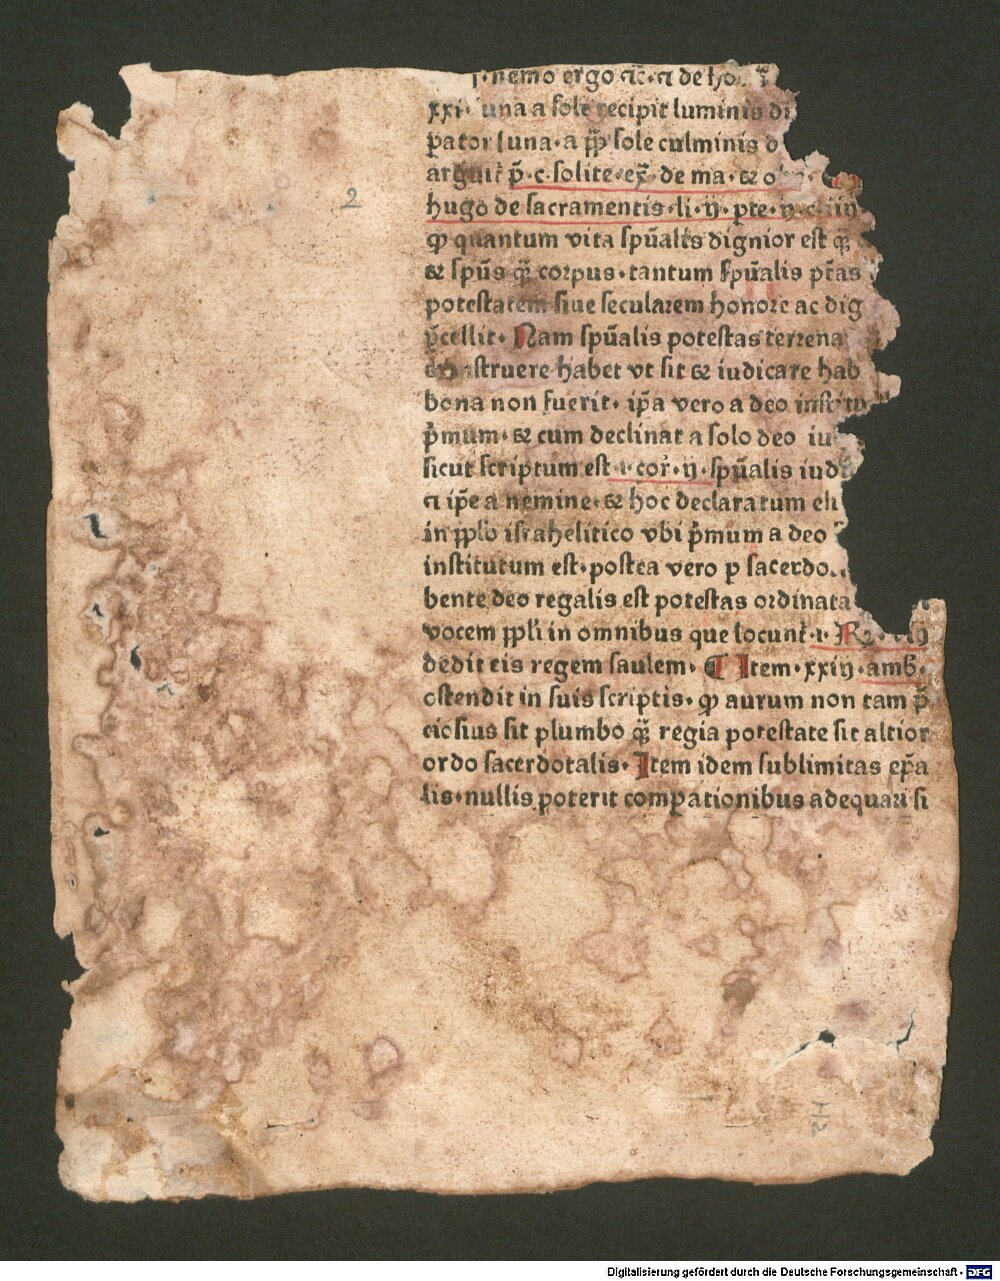 nemo ergo ⁊c̄· ⁊ de ho
xxi· luna a sole recipit luminis
pator luna· a pp̄ sole culminis
arguit̄ p̄· c· solite· ex̄· de ma· ⁊
2
hugo de sacramentis· li· ij· pte· ij· c· iiij
ꝙ quantum vita sp̄ualis dignior est q̄
⁊ sp̄us q̄ corpus· tantum sp̄ualis pt̄as
potestatem siue secularem honore ac dig
p̄cellit· Nam sp̄ualis potestas terrena
habet vt sit ⁊ iudicare hab
bona non fuerit· ip̄a vero a deo institu
p̄mum· ⁊ cum declinat a solo deo iu
sicut scriptum est· i· cor̄· ij· sp̄ualis iud
⁊ ip̄e a nemine· ⁊ hoc declaratum
in pp̄lo israhelitico vbi p̄mum a deo
institutum est· postea vero p sacerdo
bente deo regalis est potestas ordinata
vocem pp̄li in omnibus que locunt̄· i· Rꝫ·
dedit eis regem saulem· ¶ Item· xxiij· amb̄·
ostendit in suis scriptis· ꝙ aurum non tam p̄
ciosius sit plumbo q̄ regia potestate sit altior
ordo sacerdotalis· Item idem sublimitas ep̄a
lis· nullis poterit compationibus adequari si
Digitalisierung gefördert durch die Deutsche Forschungsgemeinschaft - DFG